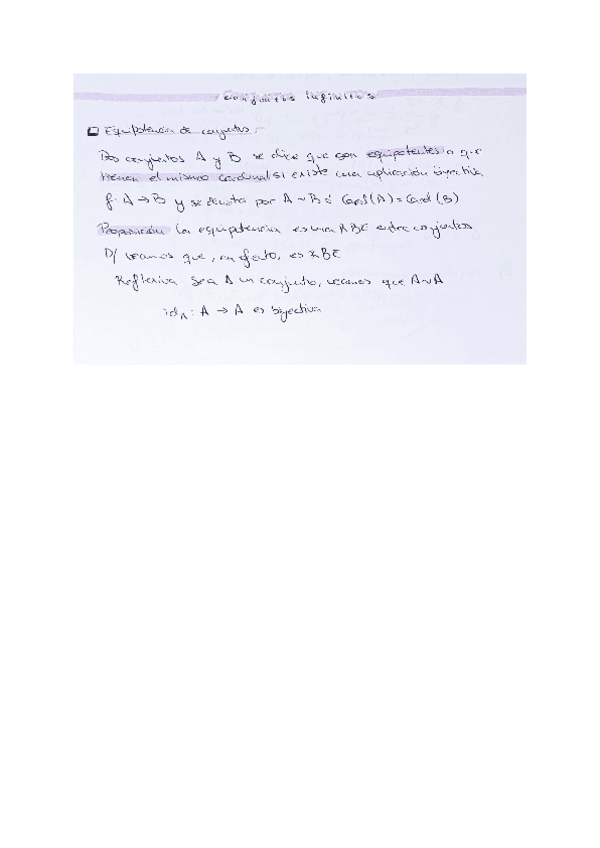 Conjuntos Infinitos
Equipotencia de conjuntos.-
Dos conjuntos A y B se dice que son equipotentes o que
tienen el mismo cardinal si existe una aplicación biyectiva
f: A → B y se denota por A ~ B ó Card(A) = Card(B)
Proposición La equipotencia es una RBE entre conjuntos
D/ Veamos que, en efecto, es RBE
Reflexiva Sea A un conjunto, veamos que A~A
id_A : A → A es biyectiva